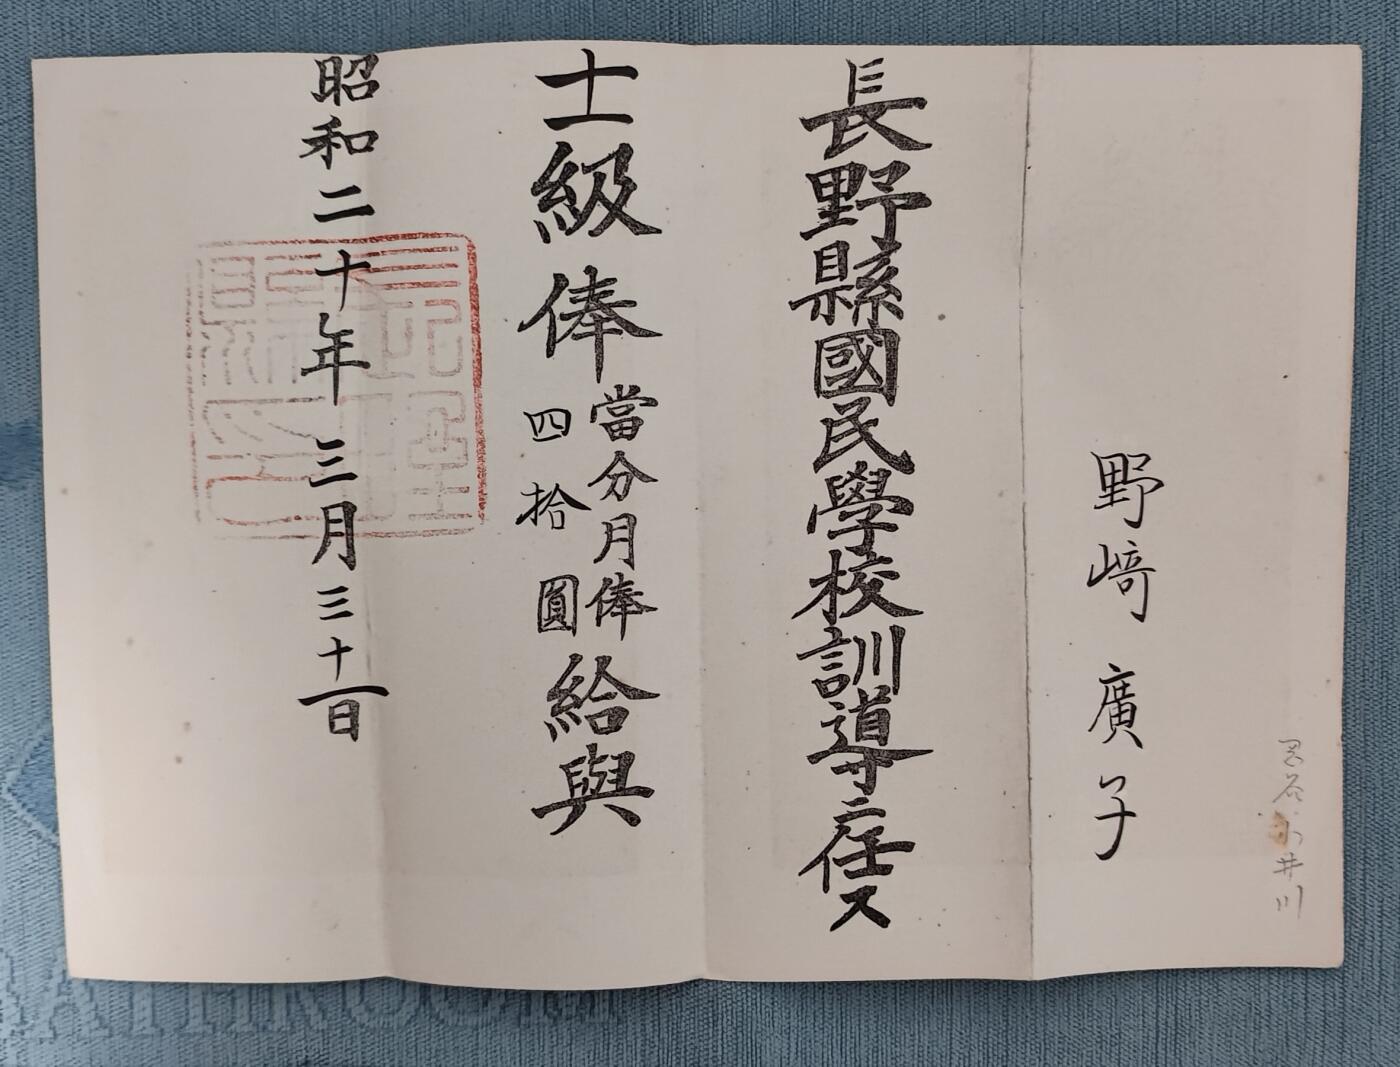 岡谷小井川
野﨑廣子
長野縣國民學校訓導ニ任ス
十一級俸
當分月俸
四拾圓
給與
昭和二十年三月三十一日